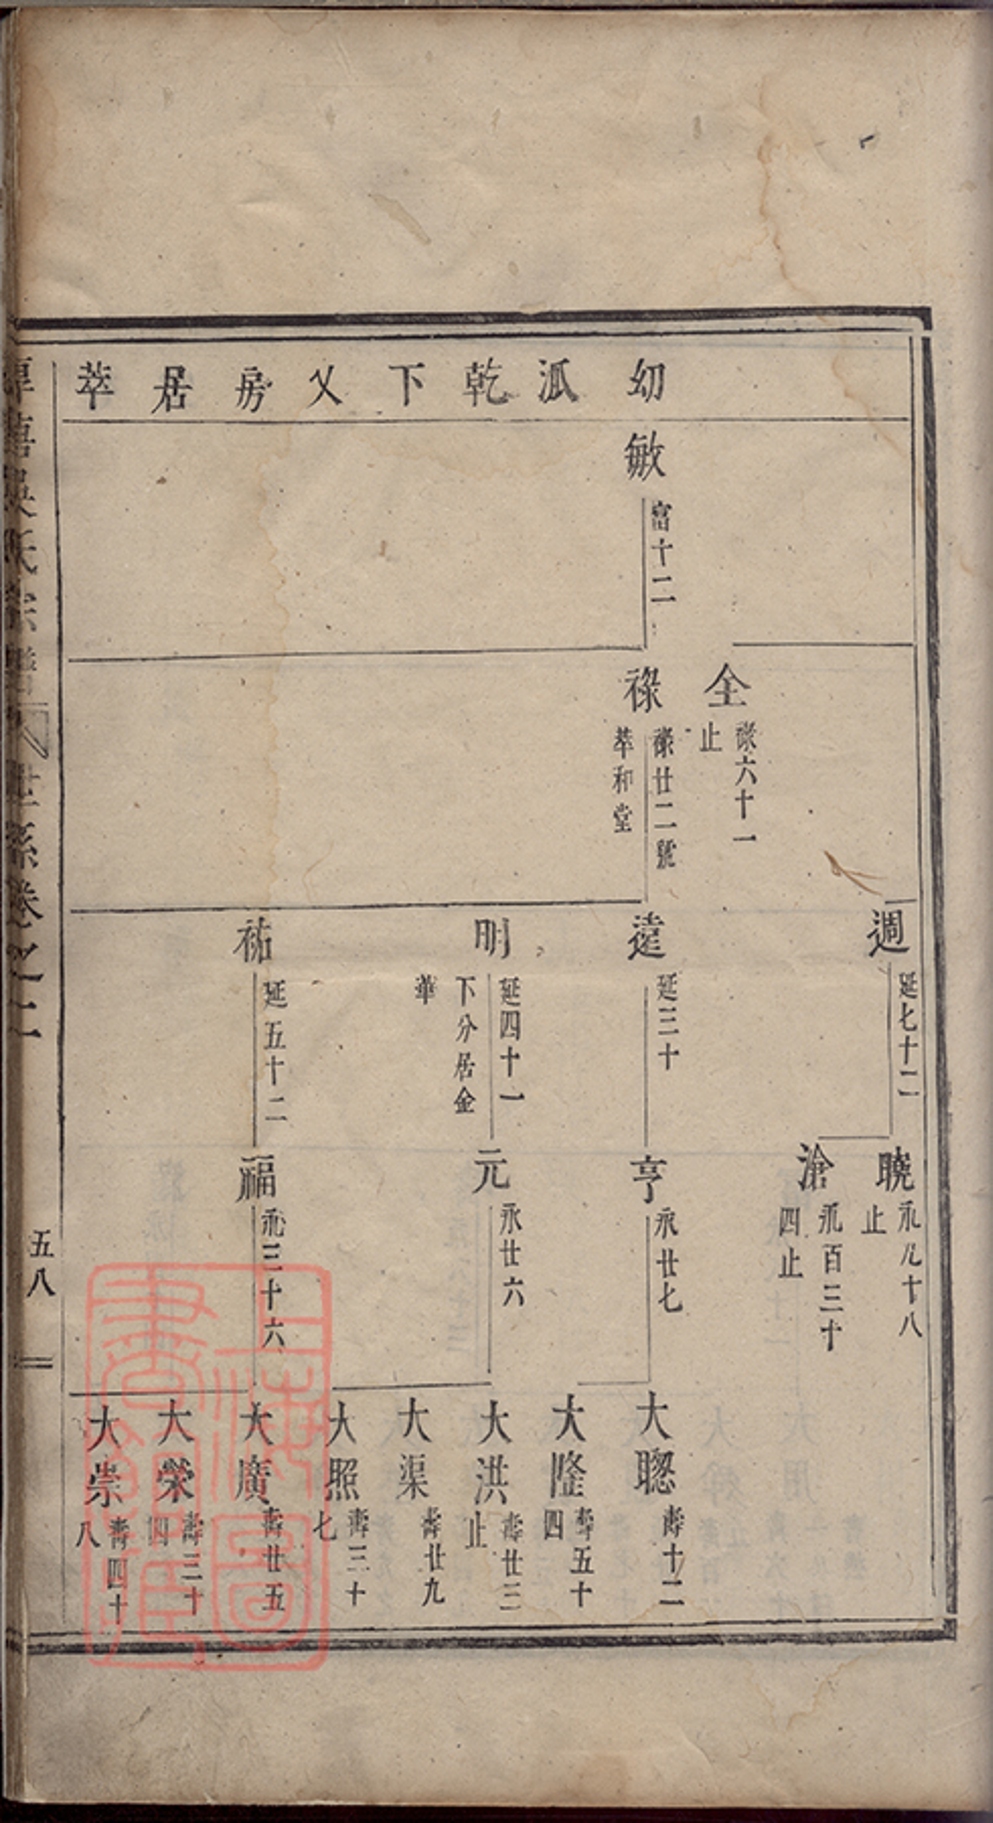 幼 泒 乾 下 乂 房 居 萃
敏
富十二
全
祿六十一
止
祿
祿廿二號
萃和堂
週
延七十二
達
延三十
明
延四十一
下分居金
華
祐
延五十二
曉
永九十八
止
滄
永百三十
四止
亨
永廿七
元
永廿六
福
永三十六
大聰
壽十二
大隆
壽五十
四
大洪
壽廿三
止
大渠
壽廿九
大照
壽三十
七
大廣
壽廿五
大榮
壽三十
四
大崇
壽四十
八
吳氏宗譜 世系卷之二
五八
上海圖書館藏